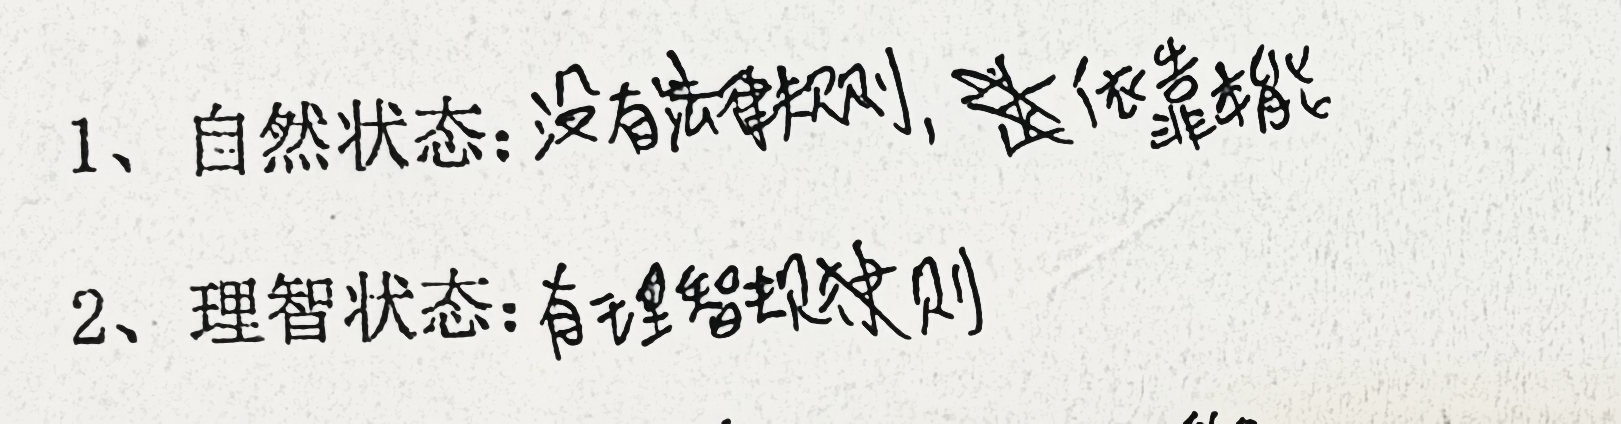 1、自然状态:没有法律规则,依靠才能
2、理智状态:有理智规则